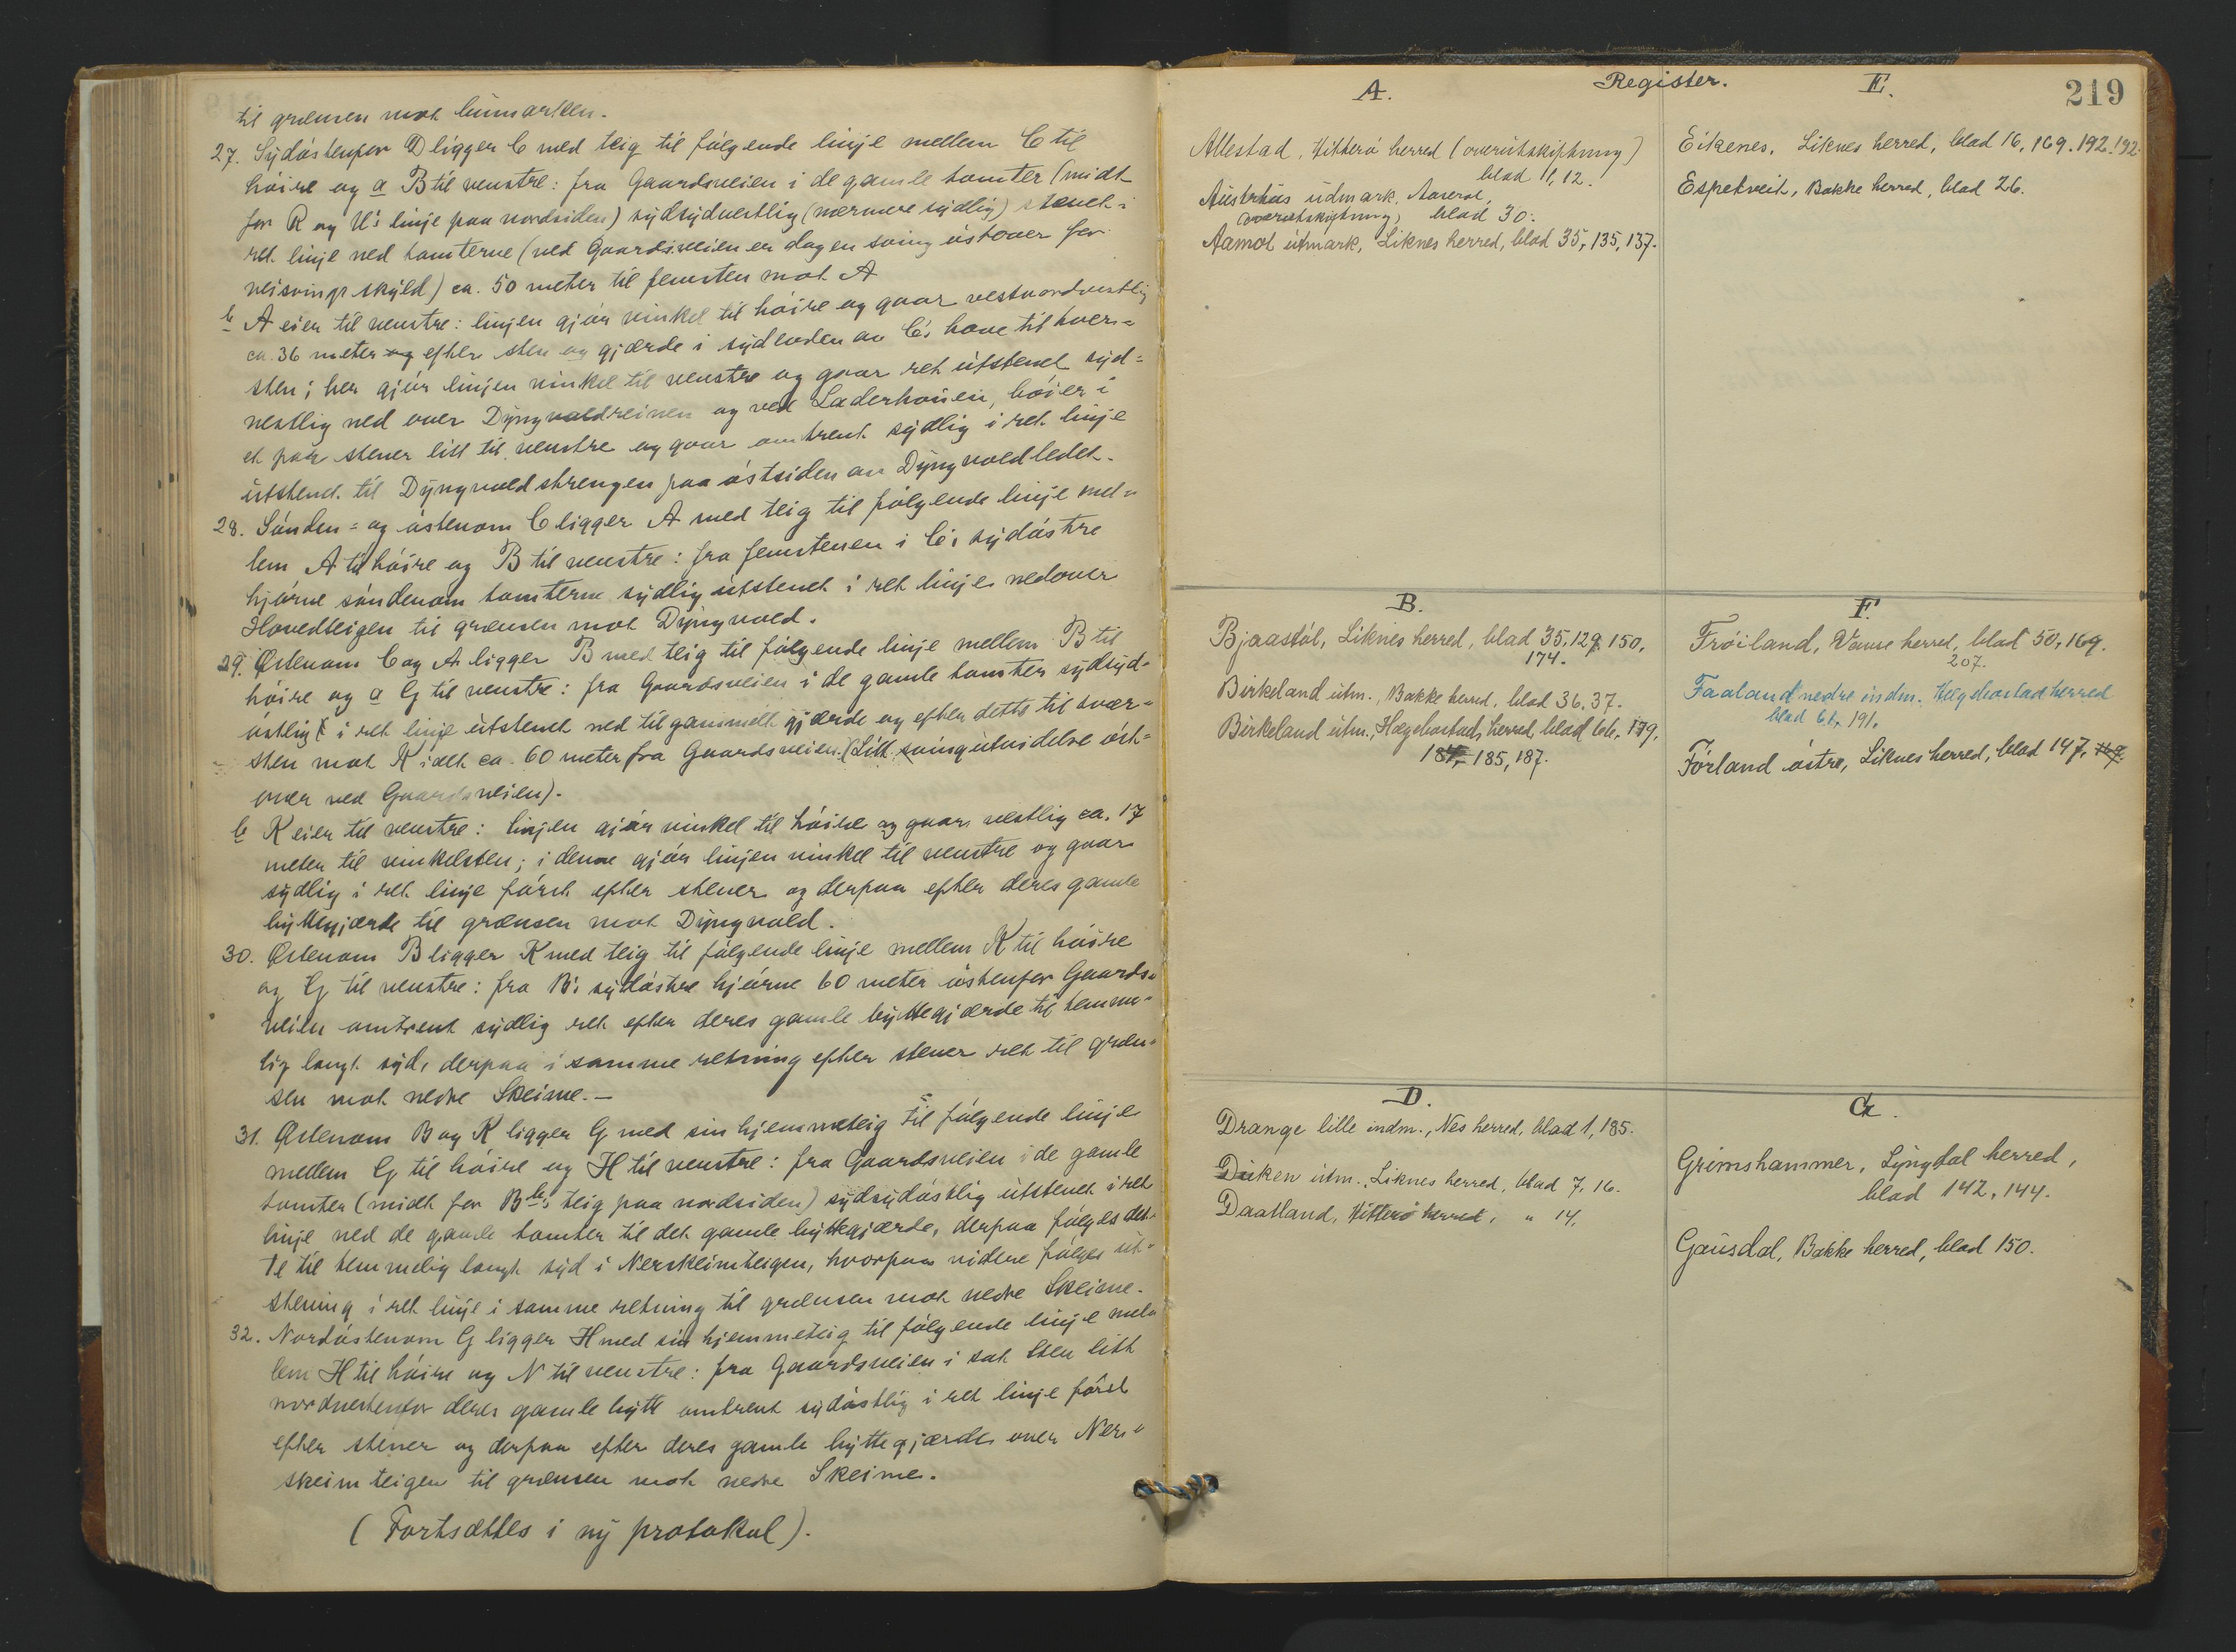 til grænsen mot heimarken.
27. Sydøstenfor D ligger C med teig til følgende linje mellem C til
høire og a B til venstre: fra Gaardsveien i de gamle tomter (midt
for R og U's linje paa nordsiden) sydsydvestlig (nærmere sydlig) stenet i
ret linje ned tomterne (ved Gaardsveien er dog en sving østover for
veisvings skyld) ca. 50 meter til femsten mot A
b A eier til venstre: linjen gjør vinkel til høire og gaar vestnordvestlig
ca. 36 meter efter sten og gjærde i sydenden av C's have til hver=
sten; her gjør linjen vinkel til venstre og gaar ret utstenet syd=
vestlig ned over Dyngvoldreinen og ved Laderhouen, bøier i
et par stener litt til venstre og gaar omtrent sydlig i ret linje
utstenet til Dyngvoldstrengen paa østsiden av Dyngvoldledet.
28. Sønden= og østenom C ligger A med teig til følgende linje mel=
lem A til høire og B til venstre: fra femstenen i C's sydøstre
hjørne søndenom tomterne sydlig utstenet i ret linje nedover
Hovedteigen til grænsen mot Dyngvold.
29. Østenom C og A ligger B med teig til følgende linje mellem B til
høire og a G til venstre: fra Gaardsveien i de gamle tomter sydsyd=
østlig i ret linje utstenet ned til gammelt gjærde og efter dette til svær=
sten mot K ialt ca. 60 meter fra Gaardsveien. (Litt svingutvidelse øst=
over ved Gaardsveien).
b K eier til venstre: linjen gjør vinkel til høire og gaar vestlig ca. 17
meter til vinkelsten; i denne gjør linjen vinkel til venstre og gaar
sydlig i ret linje først efter stener og derpaa efter deres gamle
byttegjærde til grænsen mot Dyngvold.
30. Østenom B ligger K med teig til følgende linje mellem K til høire
og G til venstre: fra B's sydøstre hjørne 60 meter østenfor Gaards=
veien omtrent sydlig ret efter deres gamle byttegjærde til temme=
lig langt syd, derpaa i samme retning efter stener ret til græn=
sen mot nedre Skeime.—
31. Østenom B og K ligger G med sin hjemmeteig til følgende linje
mellem G til høire og H til venstre: fra Gaardsveien i de gamle
tomter (midt for B b's teig paa nordsiden) sydsydøstlig utstenet i ret
linje ned de gamle tomter til det gamle byttegjærde, derpaa følges det=
te til temmelig langt syd i Nerskeimteigen, hvorpaa videre følges ut=
stening i ret linje i samme retning til grænsen mot nedre Skeime.
32. Nordøstenom G ligger H med sin hjemmeteig til følgende linje mel=
lem H til høire og N til venstre: fra Gaardsveien i sat sten litt
nordvestenfor deres gamle bytte omtrent sydøstlig i ret linje først
efter stener og derpaa efter deres gamle byttegjærde over Ner=
skeimteigen til grænsen mot nedre Skeime.
(Fortsættes i ny protokol).
Register.
219
A.
Allestad, Hitterø herred (overutskiftning)
blad 11, 12.
Austrhus udmark, Aaseral,
overutskiftning, blad 30.
Aamot utmark, Liknes herred, blad 35, 135, 137.
E.
Eikenes, Liknes herred, blad 16, 169. 192. 192.
Espetveit, Bakke herred, blad 26.
B.
Bjaastøl, Liknes herred, blad 35, 129, 150,
174.
Birkeland utm., Bakke herred, blad 36, 37.
Birkeland utm., Hægebostads herred, blad 66, 179,
184, 185, 187.
F.
Frøiland, Vanse herred, blad 50, 169.
207.
Faaland nedre indm. Hægebostad herred
blad 61, 191.
Førland østre, Liknes herred, blad 147, 169.
D.
Drange lille indm., Nes herred, blad 1, 185.
Duken utm., Liknes herred, blad 7, 16.
Daatland, Hitterø herred, " 14.
G.
Grimshammer, Lyngdal herred,
blad 142, 144.
Gausdal, Bakke herred, blad 150.